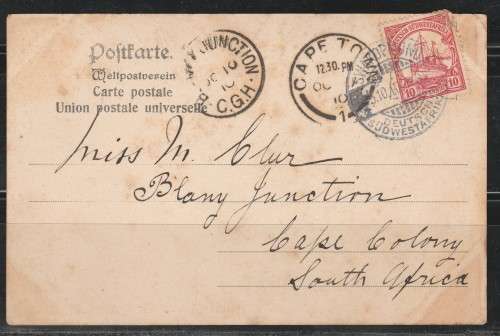 Postkarte.
Weltpostverein
Carte postale
Union postale universelle
JUNCTION
OC 10
10
C.G.H.
CAPE TOWN
12.30.PM
OC
10
DEUTSCH
SÜDWESTAFRIKA
10 10
Miss M. Clur
Blany Junction
Cape Colony
South Africa